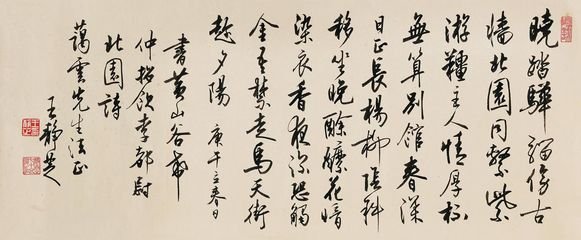 曉踏驊騮傍古
墻北園同繫紫
游韁主人情厚杯
無算別館春深
日正長楊柳陰斜
移坐晚酴醿花暗
染衣香夜深恐觸
金吾禁走馬天街
趁夕陽 庚午立春日
書黃山谷希
仲招飲李都尉
北園詩
藹雲先生法正
王靜芝